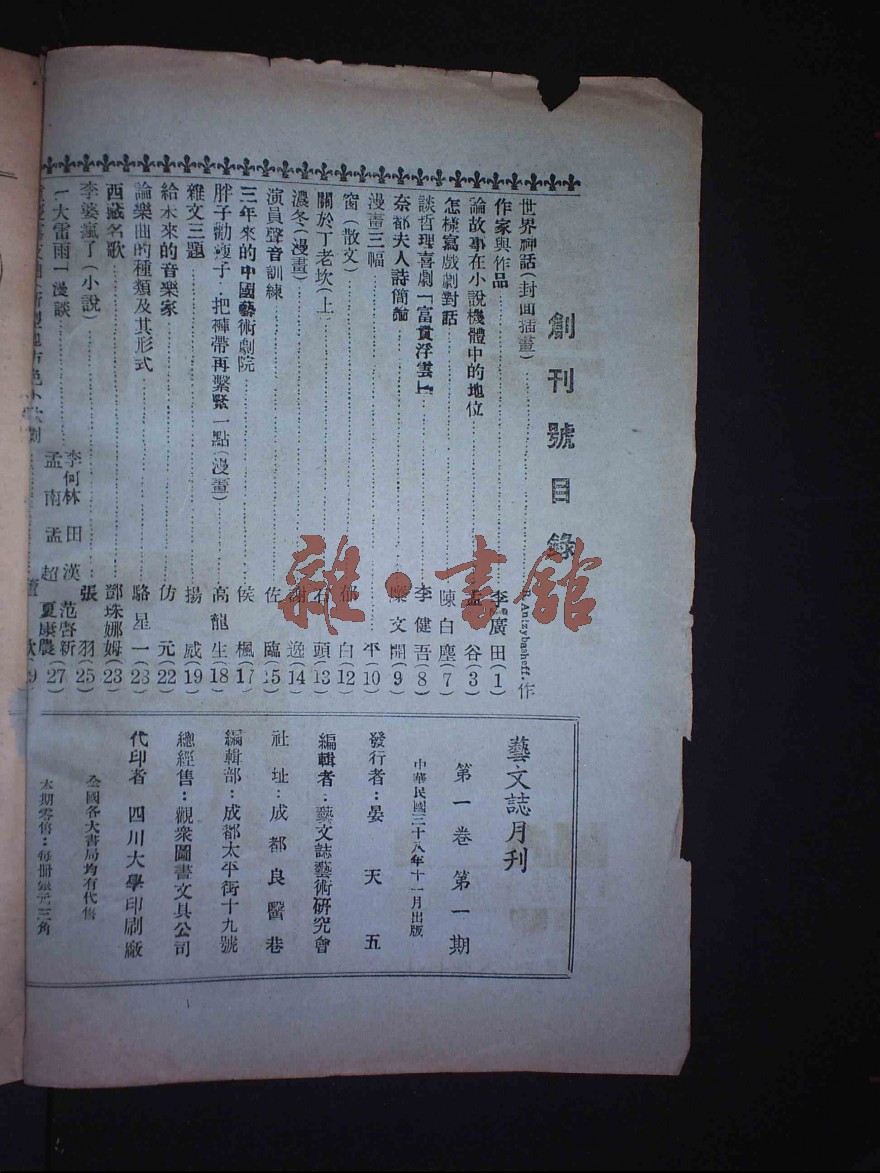 創刊號目錄
世界神話(封面插畫)……Antzybasheff.作
作家與作品……李廣田(1)
論故事在小說機體中的地位……孟谷(3)
怎樣寫戲劇對話……陳白塵(7)
談哲理喜劇「富貴浮雲」……李健吾(8)
奈都夫人詩簡論……糜文開(9)
漫畫三幅……平(10)
窗(散文)……白(12)
關於丁老坎(上)……石頭(13)
濃冬(漫畫)……謝逸(14)
演員聲音訓練……佐臨(15)
三年來的中國藝術劇院……侯楓(17)
胖子勸瘦子:把褲帶再繫緊一點(漫畫)……高龍生(18)
雜文三題……揚威(19)
給未來的音樂家……仿元(22)
論樂曲的種類及其形式……駱星一(23)
西藏名歌……鄧珠娜姆(23)
李婆瘋了(小說)……張羽(25)
「大雷雨」漫談……李何林 田漢 范啓新 孟南 孟超 夏康農(27)
藝文誌月刊
第一卷第一期
中華民國三十八年十一月出版
發行者:晏天五
編輯者:藝文誌藝術研究會
社址:成都良醫巷
編輯部:成都太平街十九號
總經售:觀衆圖書文具公司
代印者 四川大學印刷廠
全國各大書局均有代售
本期零售:每冊銀元三角
雜·書館